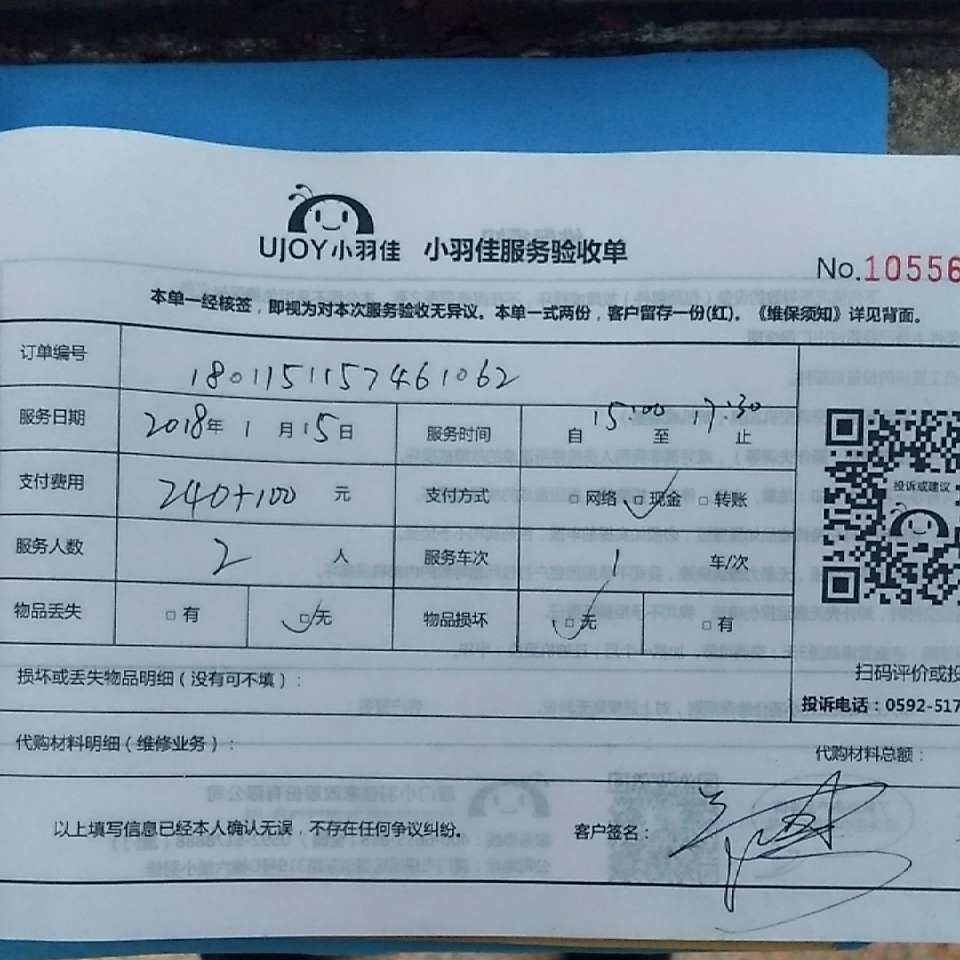 UJOY小羽佳 小羽佳服务验收单
No.10556
本单一经核签，即视为对本次服务验收无异议。本单一式两份，客户留存一份(红)。《维保须知》详见背面。
订单编号 1801151157461062
服务日期 2018年 1 月 15日 服务时间 自 15:00 至 17:30 止
支付费用 240+100 元 支付方式 □ 网络 □ 现金 □ 转账
服务人数 2 人 服务车次 1 车/次
物品丢失 □ 有 □ 无 物品损坏 □ 无 □ 有
投诉或建议
扫码评价或投
损坏或丢失物品明细（没有可不填）：
投诉电话：0592-517
代购材料明细（维修业务）：
代购材料总额：
以上填写信息已经本人确认无误，不存在任何争议纠纷。 客户签名：